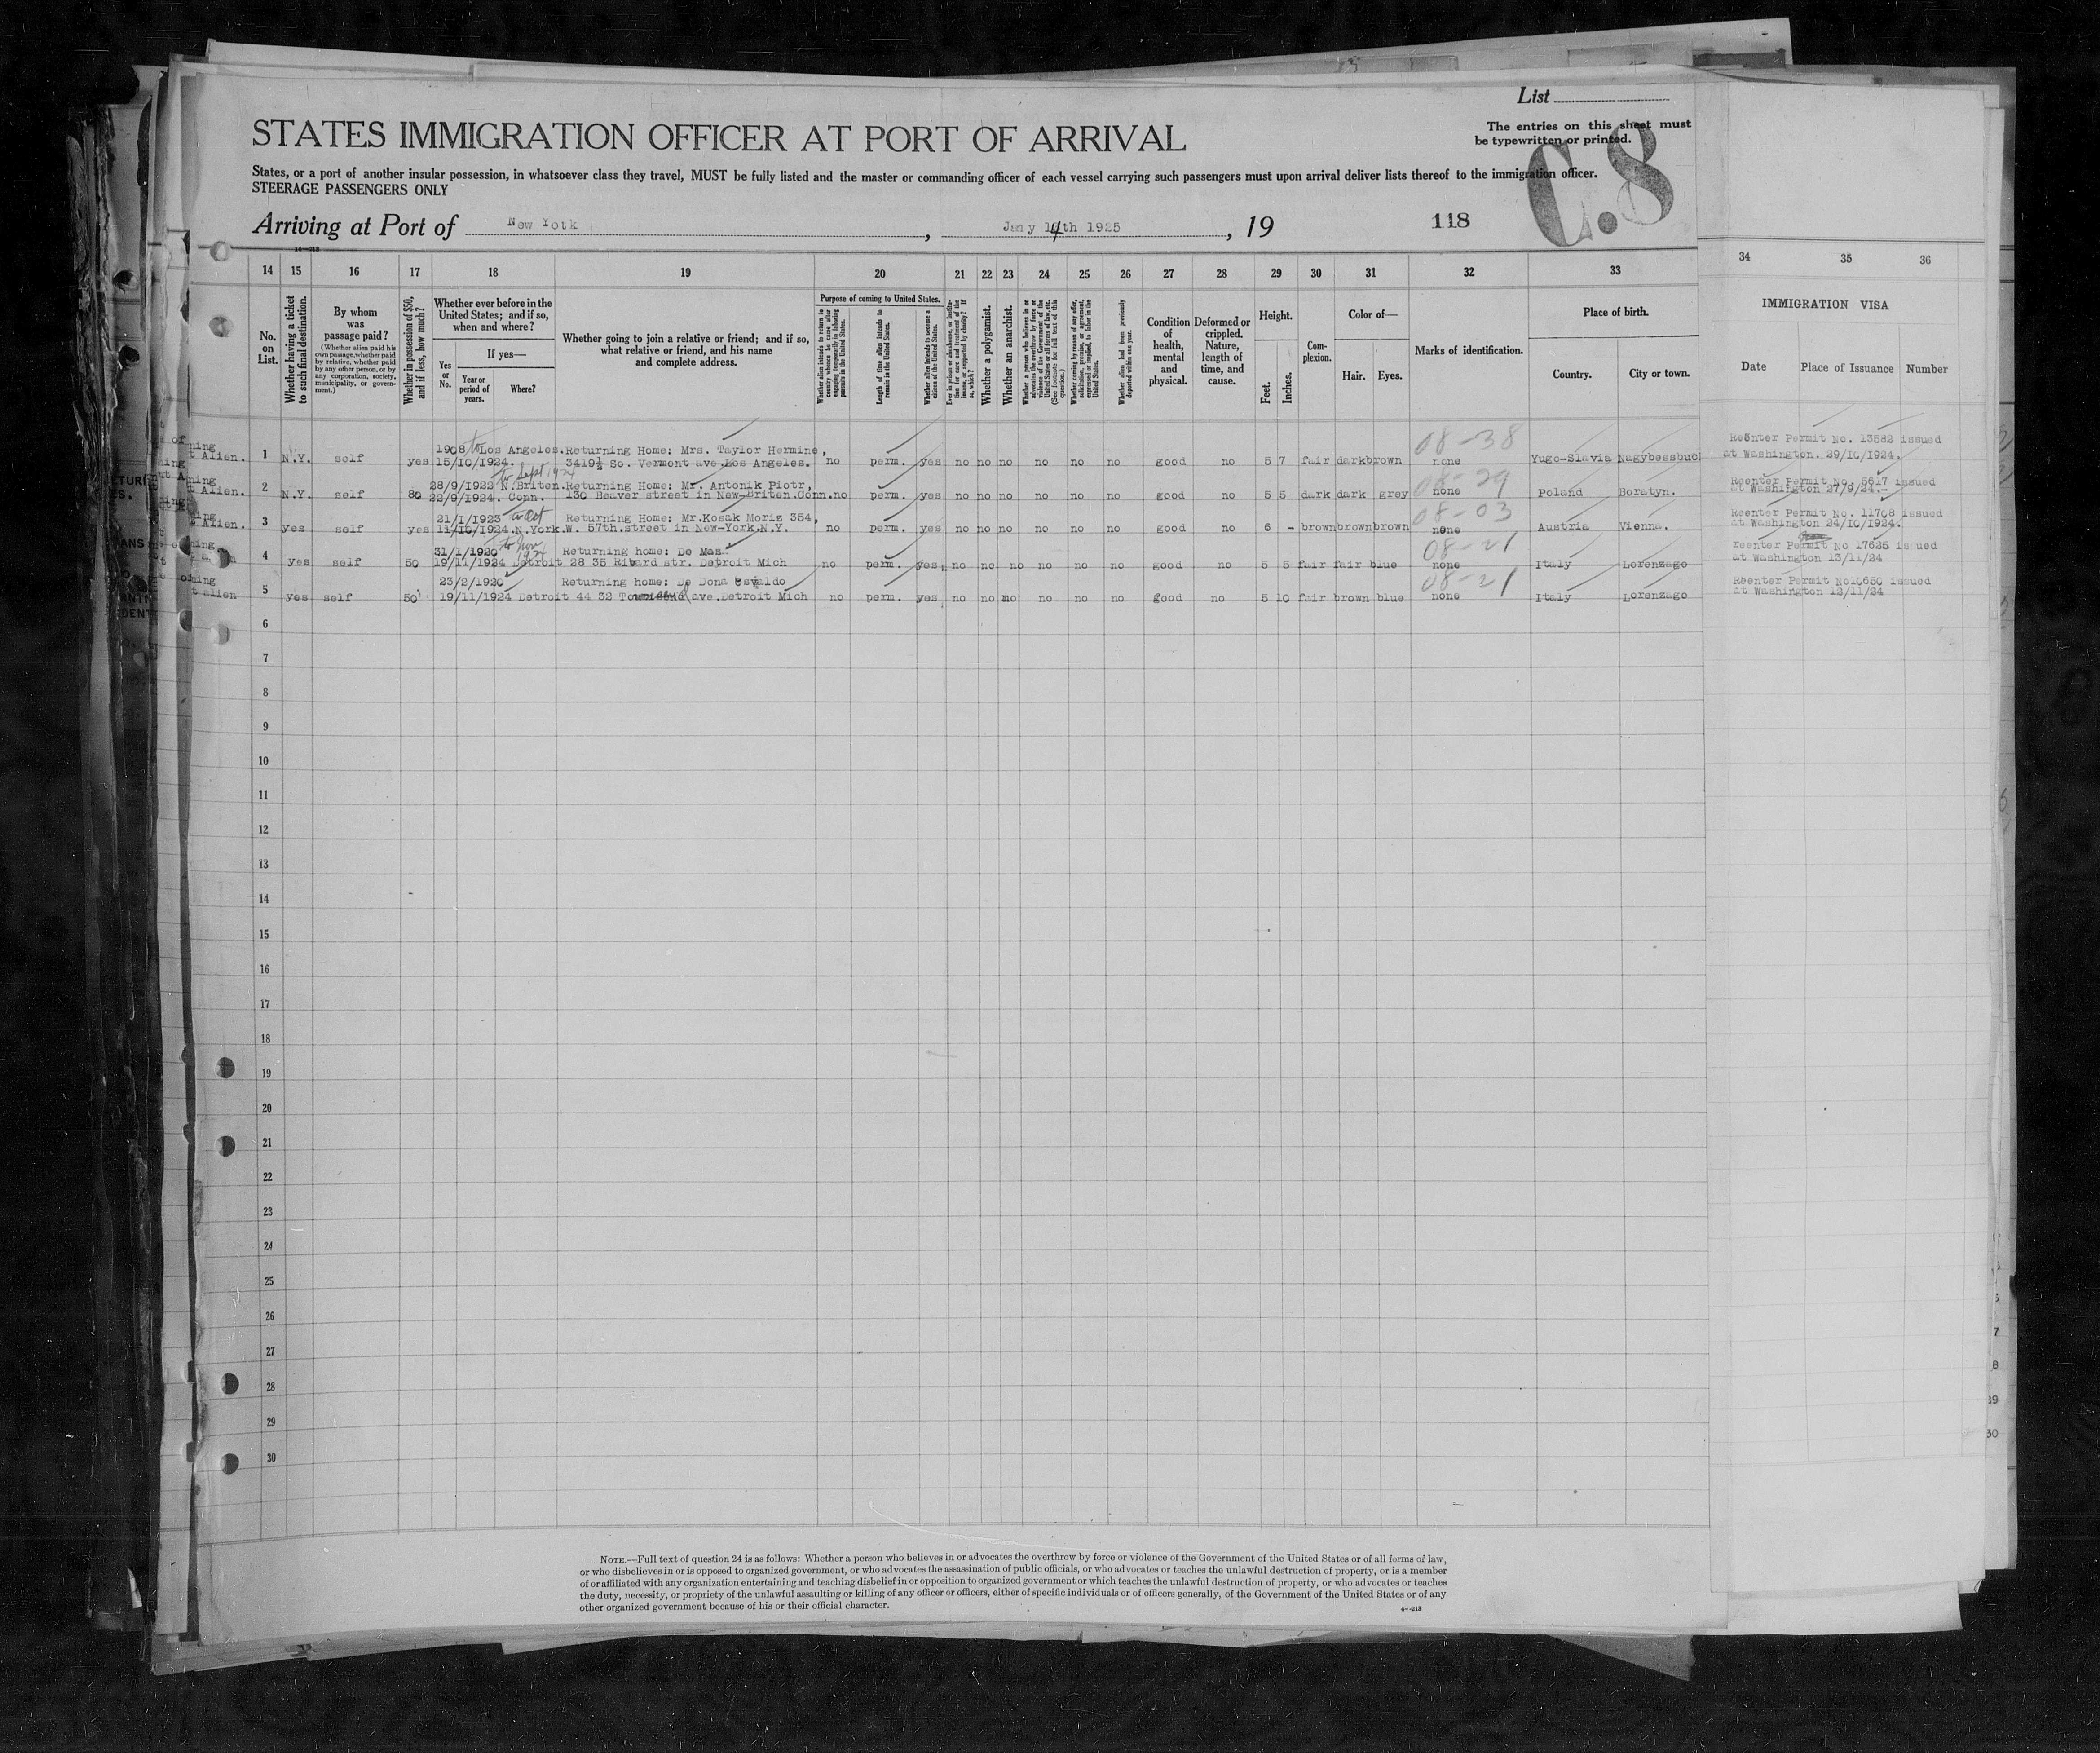 List
STATES IMMIGRATION OFFICER AT PORT OF ARRIVAL
The entries on this sheet must
be typewritten or printed.
C.8
States, or a port of another insular possession, in whatsoever class they travel, MUST be fully listed and the master or commanding officer of each vessel carrying such passengers must upon arrival deliver lists thereof to the immigration officer.
STEERAGE PASSENGERS ONLY
Arriving at Port of New Yotk, Jany 14th 1925, 19 118
14 15 16 17 18 19 20 21 22 23 24 25 26 27 28 29 30 31 32 33 34 35 36
No. on List.
Whether having a ticket to such final destination.
By whom was passage paid?
(Whether alien paid his own passage, whether paid by relative, whether paid by any other person, or by any corporation, society, municipality, or government.)
Whether in possession of $50, and if less, how much?
Whether ever before in the United States; and if so, when and where?
Yes or No.
If yes—
Year or period of years.
Where?
Whether going to join a relative or friend; and if so, what relative or friend, and his name and complete address.
Purpose of coming to United States.
Whether alien intends to return to country whence he came after engaging temporarily in laboring pursuits in the United States.
Length of time alien intends to remain in the United States.
Whether alien intends to become a citizen of the United States.
Whether a polygamist.
Whether an anarchist.
Whether coming by reason of any offer, solicitation, promise, or agreement, expressed or implied, to labor in the United States.
Whether alien had been previously deported within one year.
Condition of health, mental and physical.
Deformed or crippled. Nature, length of time, and cause.
Height.
Feet.
Inches.
Complexion.
Color of—
Hair.
Eyes.
Marks of identification.
Place of birth.
Country.
City or town.
IMMIGRATION VISA
Date
Place of Issuance
Number
1908 to Los Angeles. Returning Home: Mrs. Taylor Hermine, 08-38 Reenter Permit No. 13582 issued
1 N.Y. self yes 15/10/1924. 3419½ So. Vermont ave Los Angeles. no perm. yes no no no no no no good no 5 7 fair dark brown none Yugo-Slavia Nagybessbuc at Washington. 29/10/1924.
28/9/1922 N.Briten. Returning Home: Mr. Antonik Piotr, 08-29 Reenter Permit No. 5617 issued
2 N.Y. self 80 22/9/1924. Conn. 130 Beaver street in New-Briten.Conn. no perm. yes no no no no no no good no 5 5 dark dark grey none Poland Boratyn. at Washington 27/9/24.-
21/1/1923 to Oct Returning Home: Mr.Kosak Moriz 354, 08-03 Reenter Permit No. 11708 issued
3 yes self yes 11/10/1924. N.York. W. 57th.street in New-York.N.Y. no perm. yes no no no no no no good no 6 - brown brown brown none Austria Vienna. at Washington 24/10/1924.
31/1/1920 to Nov 1924 Returning home: De Mas 08-21 reenter Permit No 17625 issued
4 yes self 50 19/11/1924 Detroit 28 35 Rivard str. Detroit Mich no perm. yes no no no no no no good no 5 5 fair fair blue none Italy Lorenzago at Washington 13/11/24
23/2/1920 Returning home: De Dona Osvaldo 08-21 Reenter Permit No10650 issued
5 yes self 50 19/11/1924 Detroit 44 32 Townsend ave.Detroit Mich no perm. yes no no no no no no good no 5 10 fair brown blue none Italy Lorenzago at Washington 12/11/24
6
7
8
9
10
11
12
13
14
15
16
17
18
19
20
21
22
23
24
25
26
27
28
29
30
NOTE.—Full text of question 24 is as follows: Whether a person who believes in or advocates the overthrow by force or violence of the Government of the United States or of all forms of law,
or who disbelieves in or is opposed to organized government, or who advocates the assassination of public officials, or who advocates or teaches the unlawful destruction of property, or is a member
of or affiliated with any organization entertaining and teaching disbelief in or opposition to organized government or which teaches the unlawful destruction of property, or who advocates or teaches
the duty, necessity, or propriety of the unlawful assaulting or killing of any officer or officers, either of specific individuals or of officers generally, of the Government of the United States or of any
other organized government because of his or their official character.